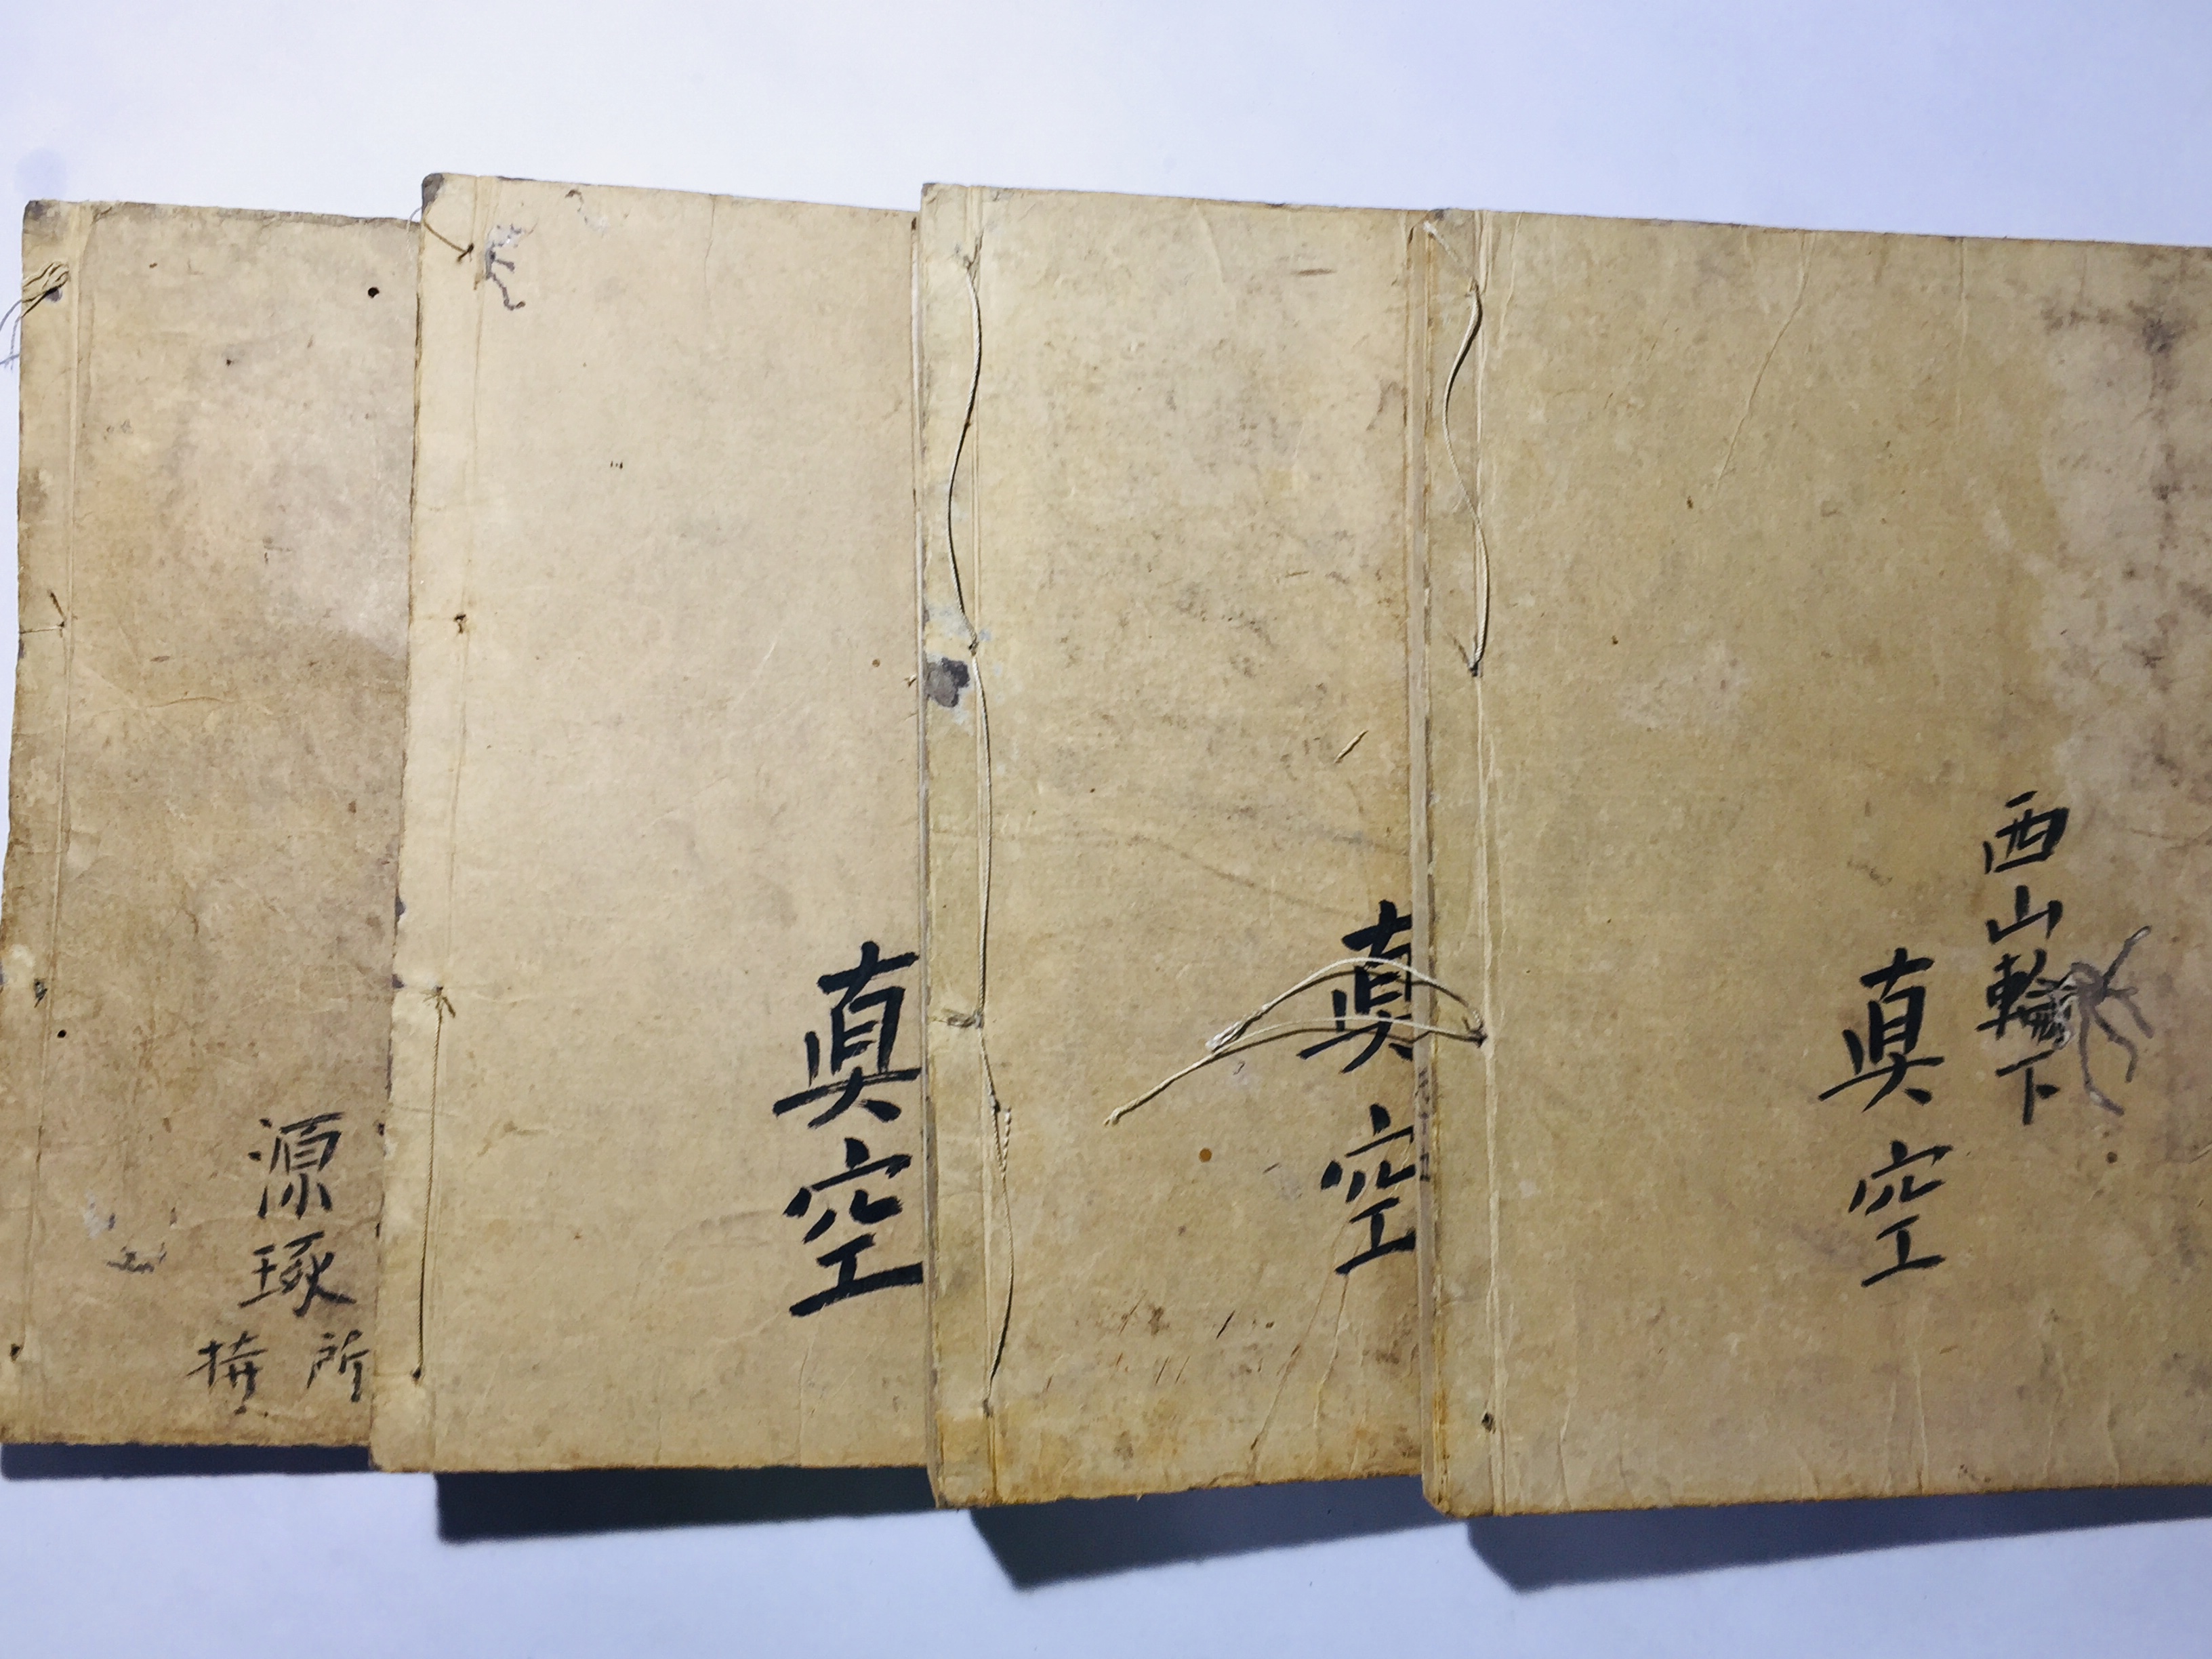 西山輪下
真空
真空
真空
源琢
所持